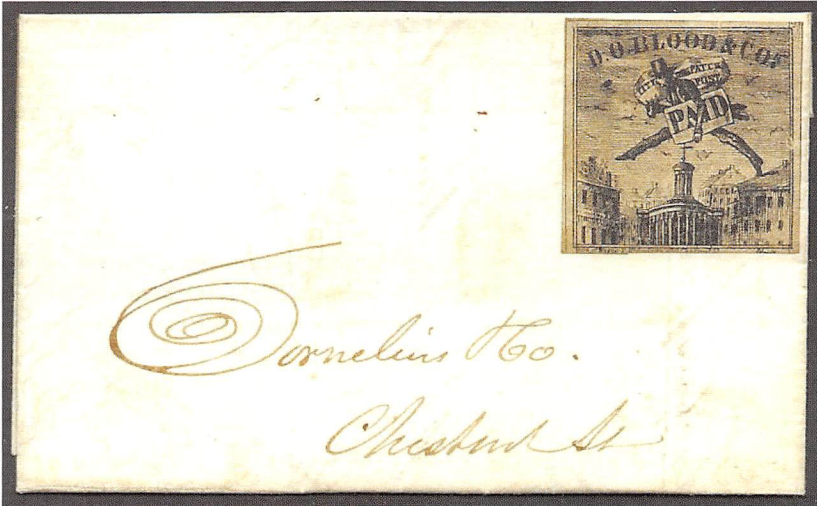 D.O.BLOOD & CO'S
CITY DESPATCH
POST
PAID
Cornelius & Co.
Chestnut St